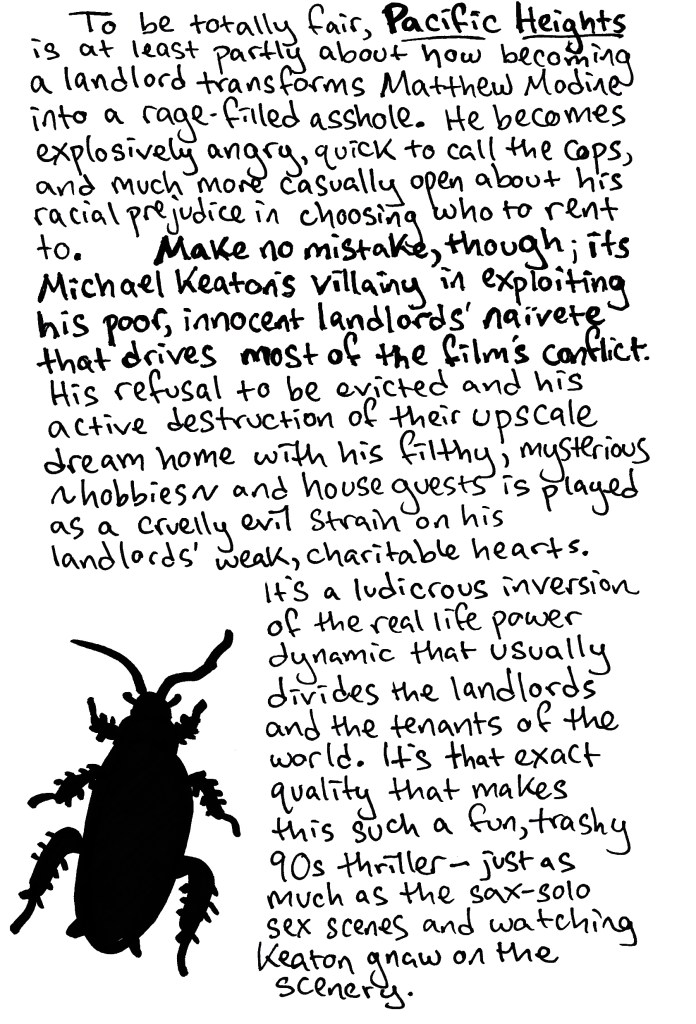 To be totally fair, Pacific Heights
is at least partly about how becoming
a landlord transforms Matthew Modine
into a rage-filled asshole. He becomes
explosively angry, quick to call the cops,
and much more casually open about his
racial prejudice in choosing who to rent
to. Make no mistake, though; its
Michael Keaton's villainy in exploiting
his poor, innocent landlords' naivete
that drives most of the film's conflict.
His refusal to be evicted and his
active destruction of their upscale
dream home with his filthy, mysterious
~hobbies~ and houseguests is played
as a cruelly evil strain on his
landlords' weak, charitable hearts.
It's a ludicrous inversion
of the real life power
dynamic that usually
divides the landlords
and the tenants of the
world. It's that exact
quality that makes
this such a fun, trashy
90s thriller – just as
much as the sax-solo
sex scenes and watching
Keaton gnaw on the
scenery.